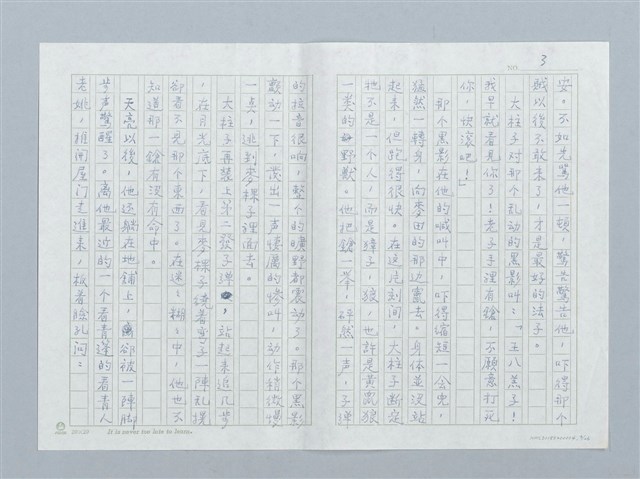 NO. 3
安。不如先罵他一頓，警告警告他，吓得那个
贼以後不敢来了，才是最好的法子。
大柱子对那个乱动的黑影叫：「王八羔子！
我早就看見你了！老子手裡有槍，不願意打死
你，快滚吧！」
那个黑影在他的喊叫中，吓得缩短一会兒，
猛然一轉身，向麥田的那边竄去。身体並没站
起来，但跑得很快。在这片刻间，大柱子断定
牠不是一个人，而是獐子，狼，也許是黃鼠狼
一类的野獸。他把鎗一举，砰然一声，子弹
的核音很响，整个的曠野都震动了。那个黑影
颤动一下，發出一声悽厲的慘叫，动作稍微慢
一点，逃到麥棵子裡面去。
大柱子再壓上第二發子弹，站起来追几步
，在月光底下，看見麥棵子繞着弯子一陣乱搅
卻看不見那个東西了。在迷迷糊糊中，他也不
知道那一鎗有没有命中。
天亮以後，他还躺在地鋪上，卻被一陣脚
步声驚醒了。离他最近的一个看青蓬的看青人
老姚，推開屋门走進来，板着臉孔问：
20×20 It is never too late to learn.